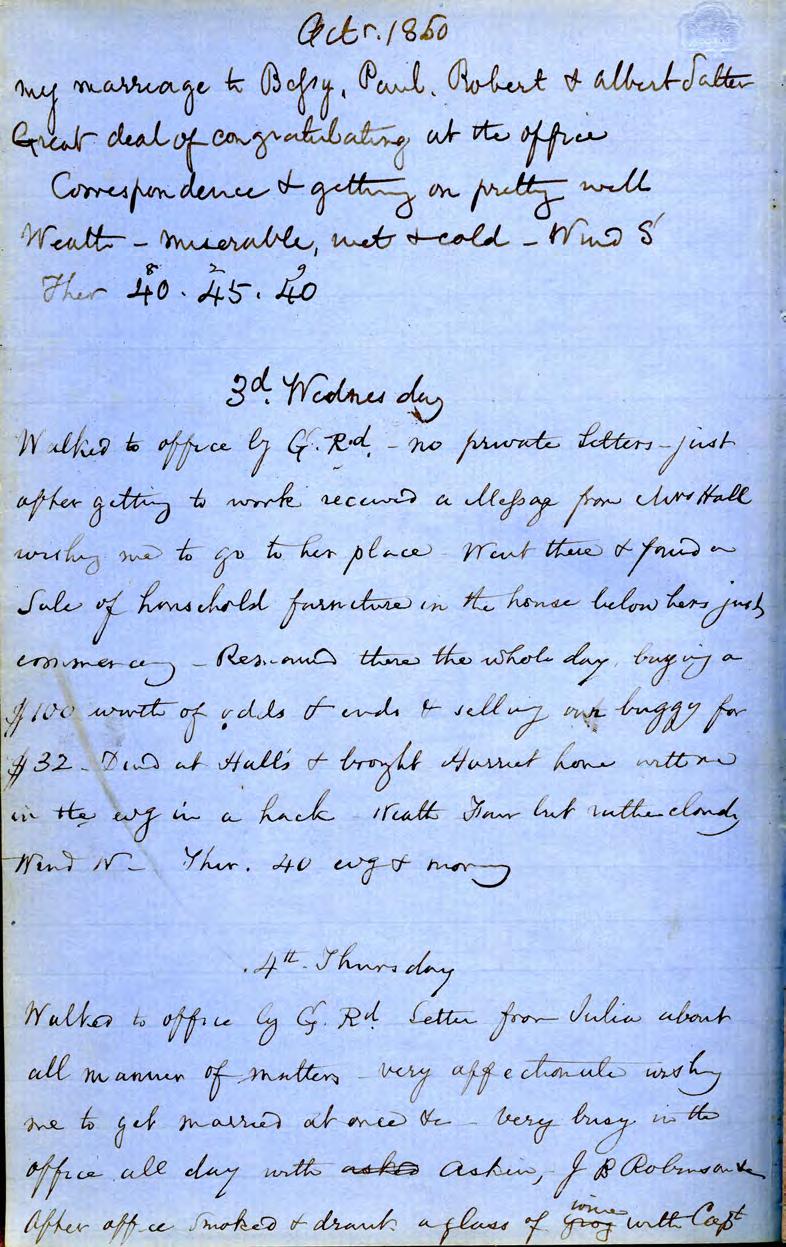 Octr. 1860
my marriage to Bessy, Paul, Robert & Albert Salter
Great deal of congratulating at the office
Correspondence & getting on pretty well
Weath - miserable, wet & cold - Wind S
8 2 9
Ther 40. 45. 40
3d. Wednesday
Walked to office by G. Rd. - no private letters - just
after getting to work received a Message from Mrs Hall
wishg me to go to her place Went there & found a
Sale of household furniture in the house below hers just
commencg - Remained there the whole day, buying a
$100 worth of odds & ends & selling our buggy for
$32 - Dined at Hall's & brought Harriet home with me
in the evg in a hack Weath Fair but rather cloudy
Wind N - Ther. 40 evg & morng
4th Thursday
Walked to office by G. Rd. Letter from Julia about
all manner of matters very affectionate wishg
me to get married at once &c - very busy in the
office all day with asked Askin, J B Robinson &c
After office smoked & drank a glass of grog wine with Capt